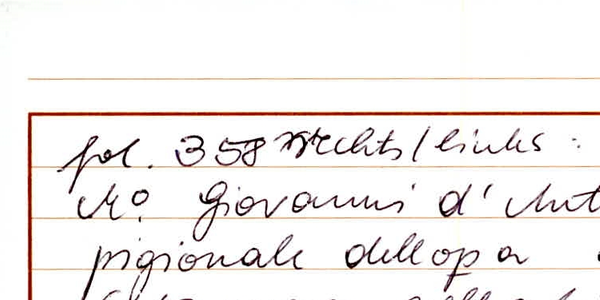 fol. 358 rechts / links :
Mo. Giovanni d' Ant
pigionale dell opa